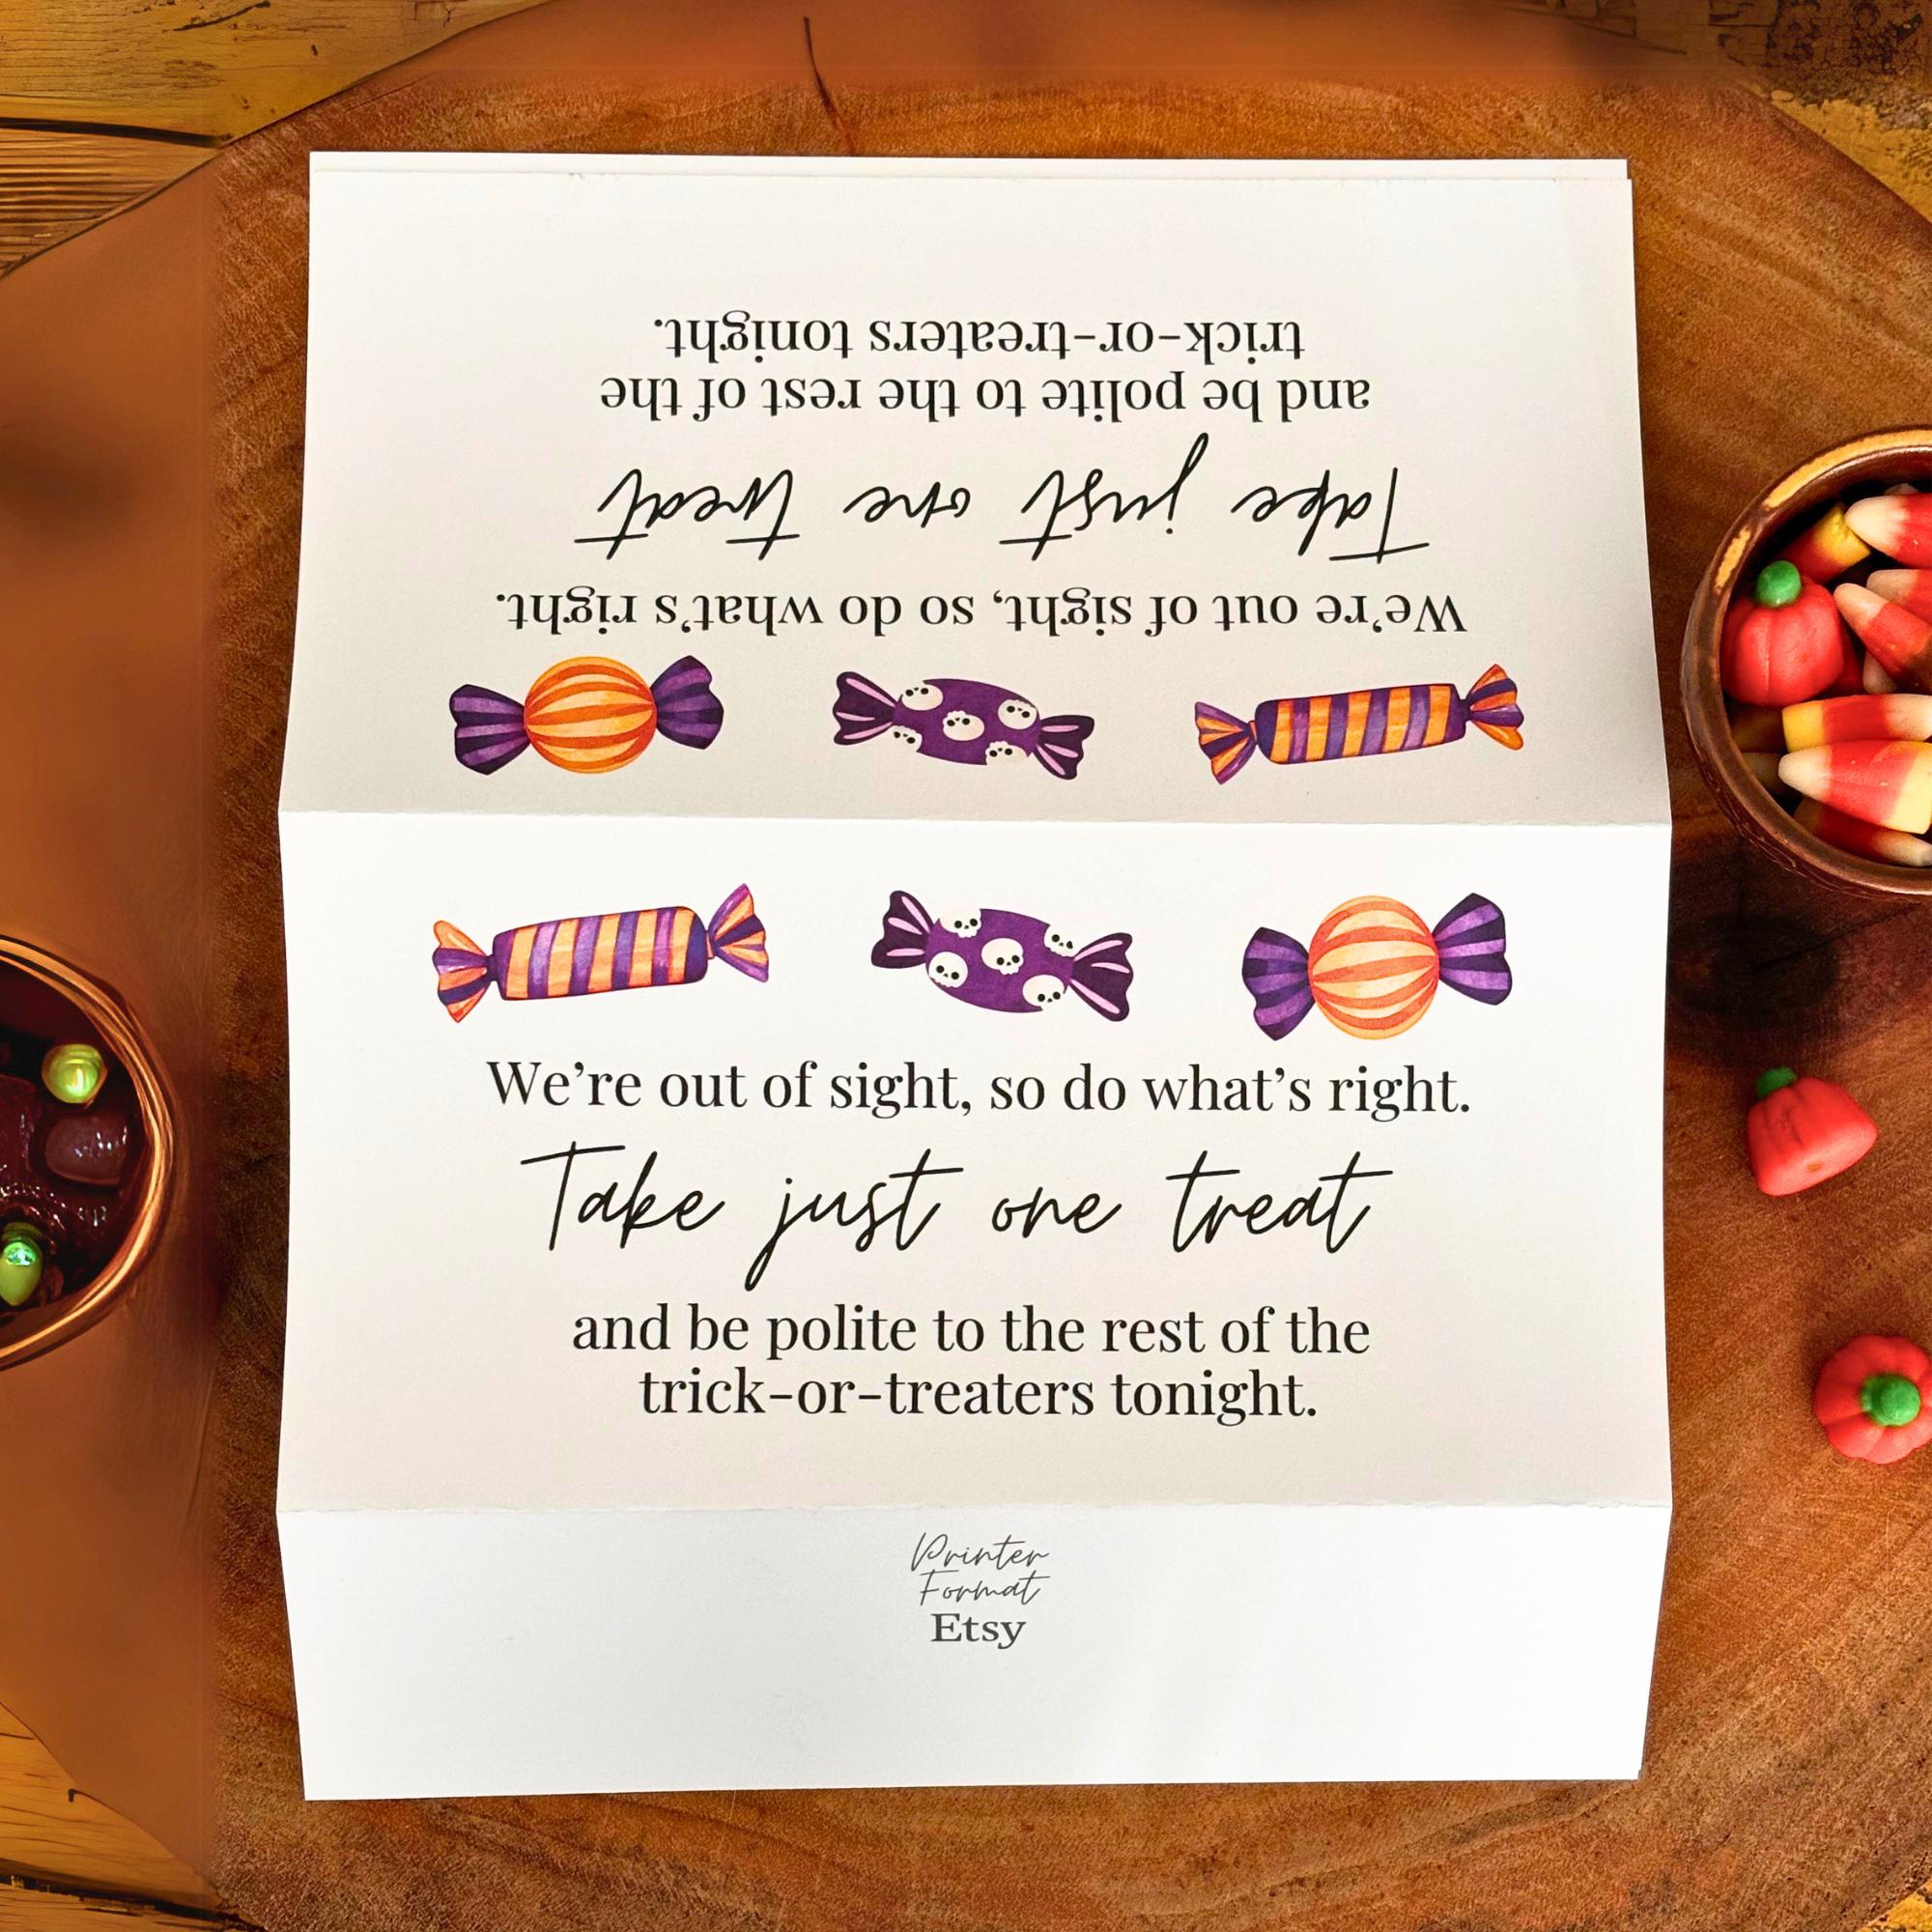 trick-or-treaters tonight.
and be polite to the rest of the
Take just one treat
We're out of sight, so do what's right.
We're out of sight, so do what's right.
Take just one treat
and be polite to the rest of the
trick-or-treaters tonight.
Printer
Format
Etsy